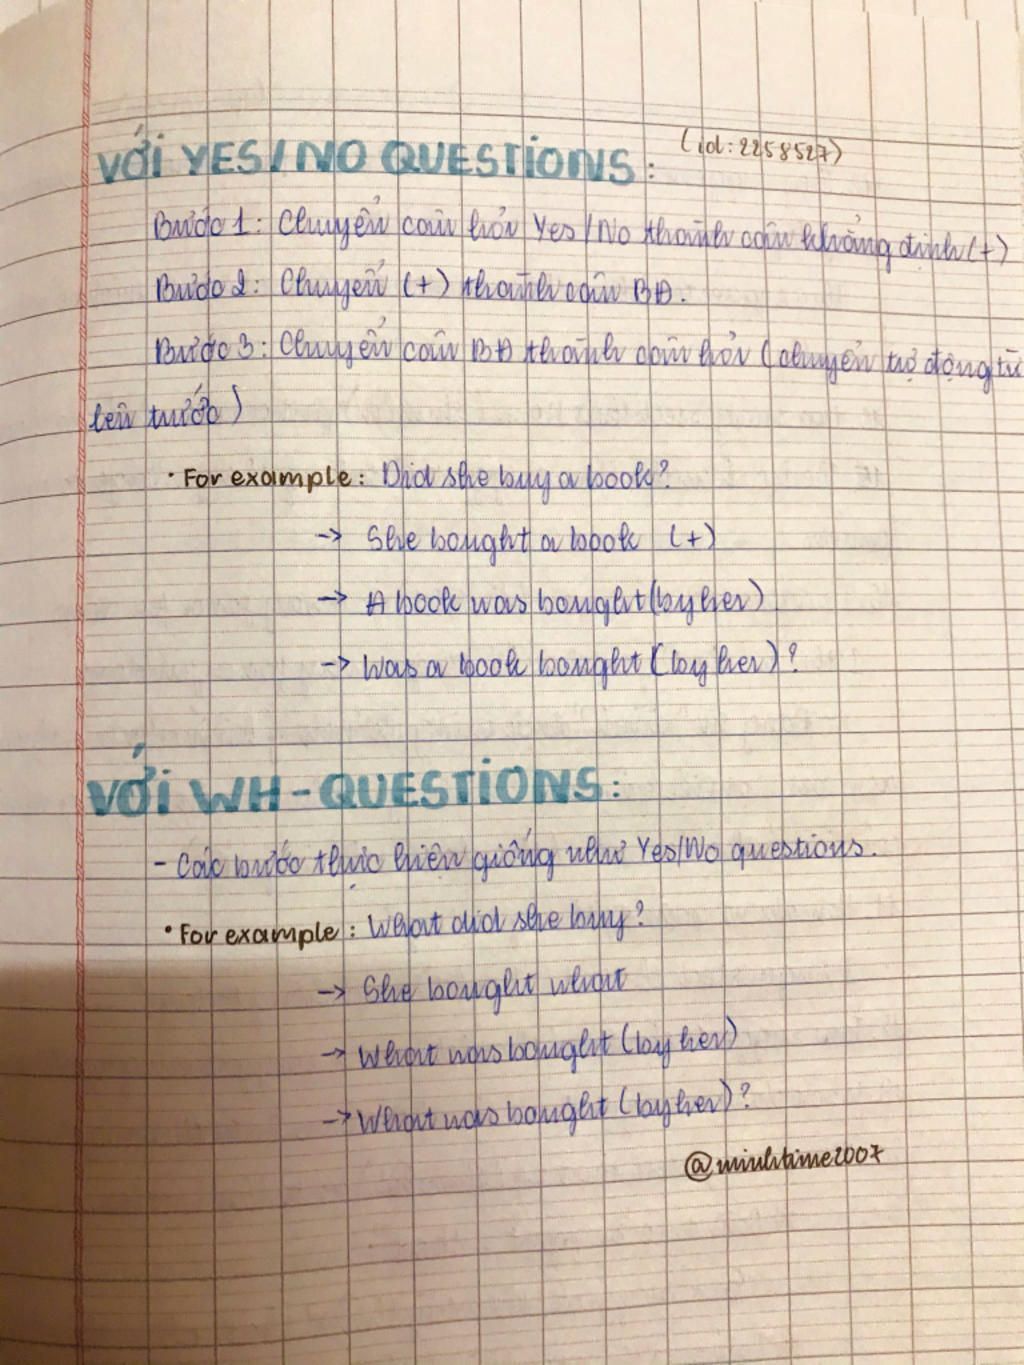 VỚI YES/NO QUESTIONS: (id: 2258527)
Bước 1: Chuyển câu hỏi Yes/No thành câu khẳng định (+)
Bước 2: Chuyển (+) thành câu BĐ.
Bước 3: Chuyển câu BĐ thành câu hỏi (chuyển trợ động từ
lên trước)
• For example: Did she buy a book?
→ She bought a book (+)
→ A book was bought (by her)
→ Was a book bought (by her)?
VỚI WH-QUESTIONS:
- Các bước thực hiện giống như Yes/No questions.
• For example: What did she buy?
→ She bought what
→ What was bought (by her)
→ What was bought (by her)?
@minhtime2007